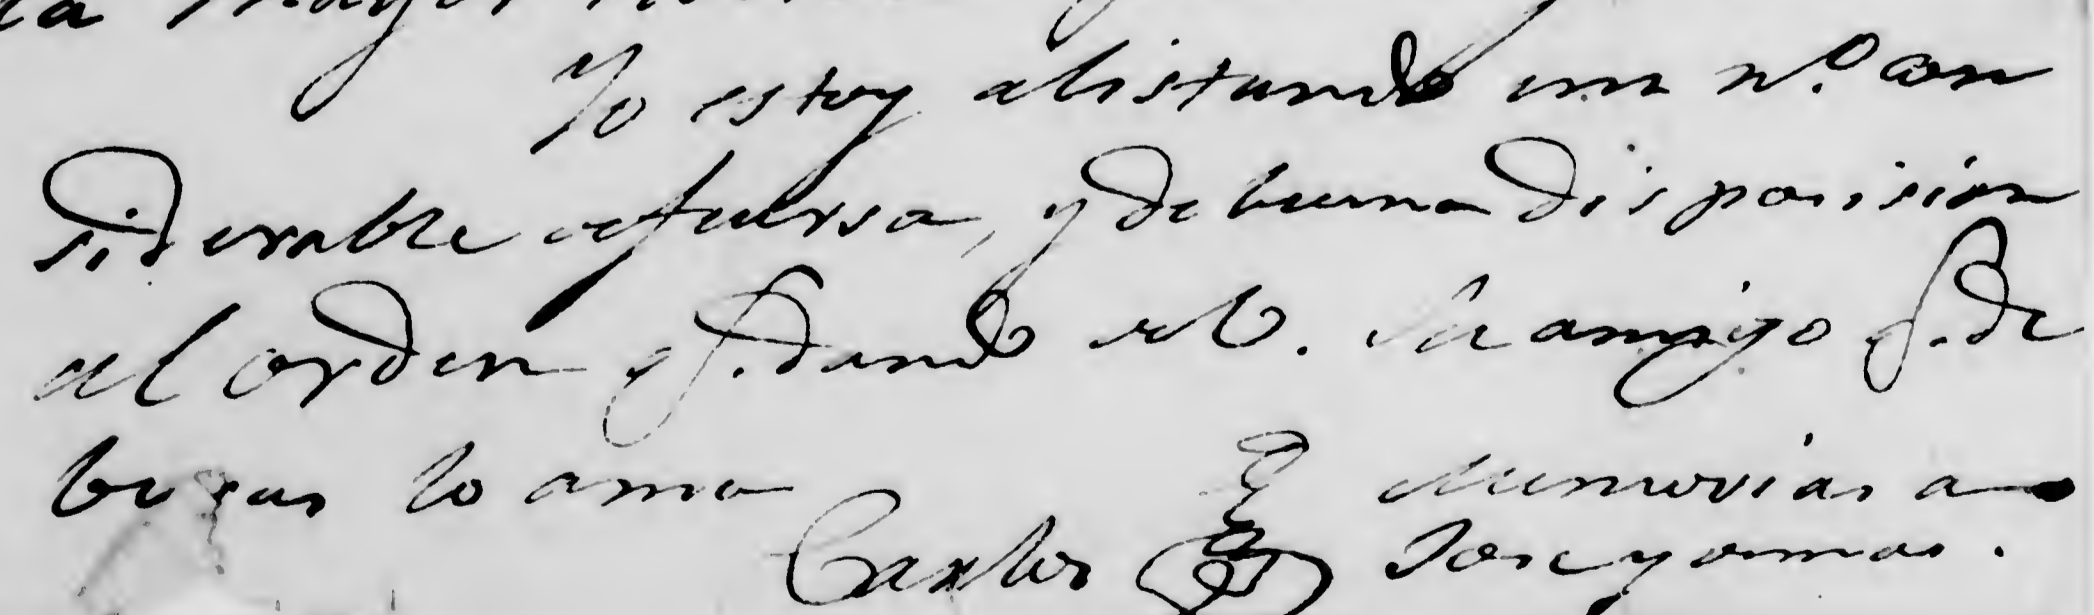 la mayor
Yo estoy alistando un nº. con
siderable de fuersa, y de buena disposision
al orden qf. dando el V. Su amigo q. de
beras lo ama
Carlos Memorias a
Jose y amas.